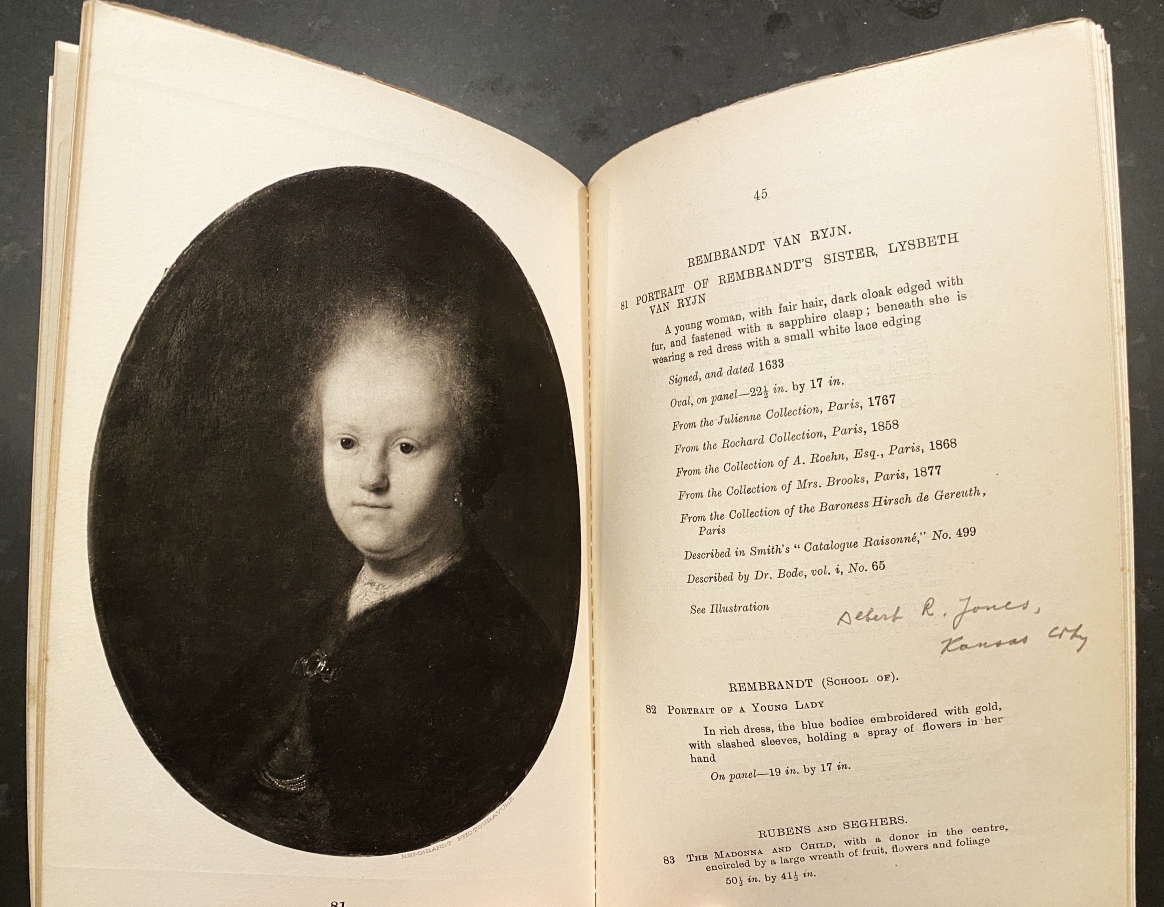 REMBRANDT PHOTOGRAVURE
81
45
REMBRANDT VAN RYJN.
81 PORTRAIT OF REMBRANDT'S SISTER, LYSBETH
VAN RYJN
A young woman, with fair hair, dark cloak edged with
fur, and fastened with a sapphire clasp; beneath she is
wearing a red dress with a small white lace edging
Signed, and dated 1633
Oval, on panel—22½ in. by 17 in.
From the Julienne Collection, Paris, 1767
From the Rochard Collection, Paris, 1858
From the Collection of A. Roehn, Esq., Paris, 1868
From the Collection of Mrs. Brooks, Paris, 1877
From the Collection of the Baroness Hirsch de Gereuth,
Paris
Described in Smith's "Catalogue Raisonné," No. 499
Described by Dr. Bode, vol. i, No. 65
See Illustration
Albert R. Jones,
Kansas City
REMBRANDT (SCHOOL OF).
82 PORTRAIT OF A YOUNG LADY
In rich dress, the blue bodice embroidered with gold,
with slashed sleeves, holding a spray of flowers in her
hand
On panel—19 in. by 17 in.
RUBENS AND SEGHERS.
83 THE MADONNA AND CHILD, with a donor in the centre,
encircled by a large wreath of fruit, flowers and foliage
50½ in. by 41½ in.